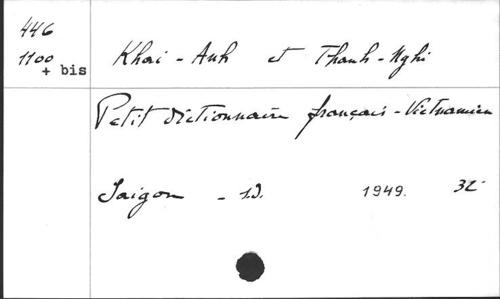 446
1100
+ bis
Khai - Anh et Thanh-Nghi
Petit dictionnaire français-Vietnamien
Saigon - s.d. 1949. 32